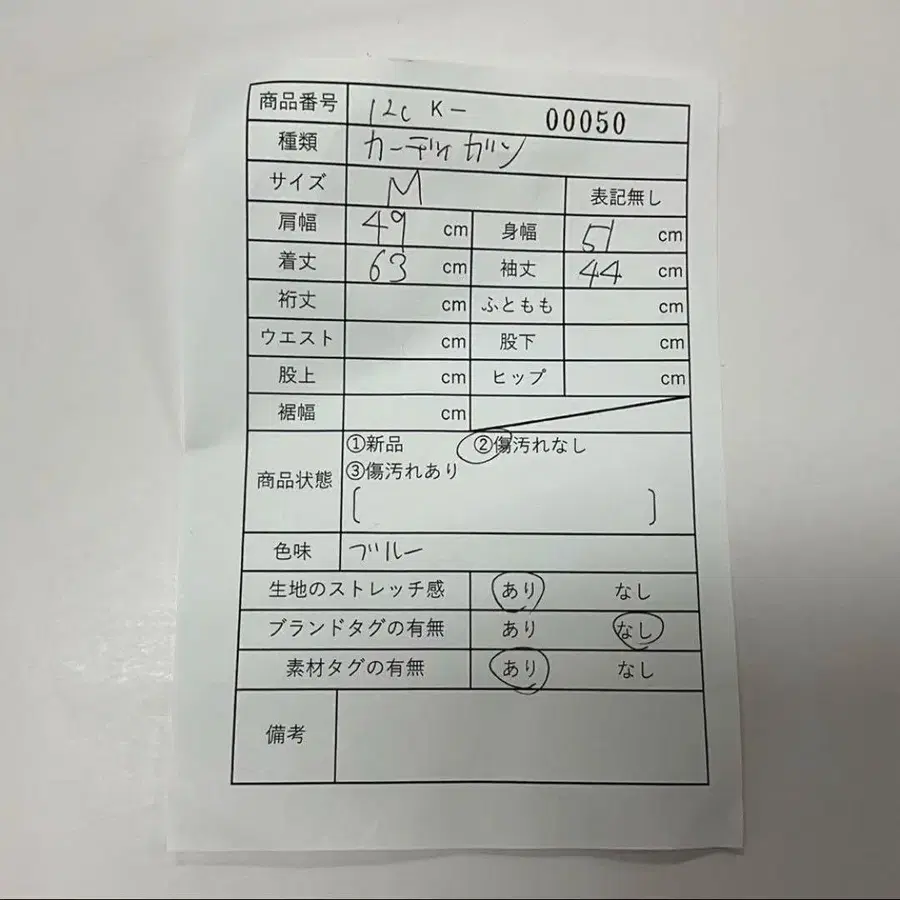 商品番号 12c K- 00050
種類 カーディガン
サイズ M 表記無し
肩幅 49 cm 身幅 51 cm
着丈 63 cm 袖丈 44 cm
裄丈 cm ふともも cm
ウエスト cm 股下 cm
股上 cm ヒップ cm
裾幅 cm
①新品 ②傷汚れなし
商品状態 ③傷汚れあり
[ ]
色味 ブルー
生地のストレッチ感 あり なし
ブランドタグの有無 あり なし
素材タグの有無 あり なし
備考